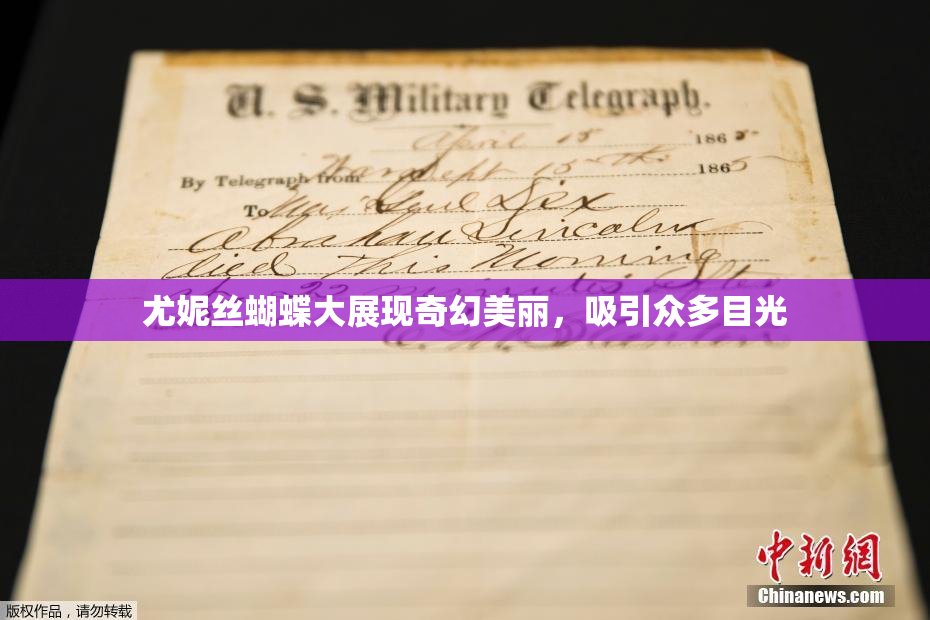 U. S. Military Telegraph.
April 15 1865
By Telegraph from War Dept 15th 1865
To Maj Genl Dix
Abraham Lincoln
died This Morning
22 minutes after
尤妮丝蝴蝶大展现奇幻美丽，吸引众多目光
E. M. Stanton
中新网
版权作品，请勿转载
Chinanews.com